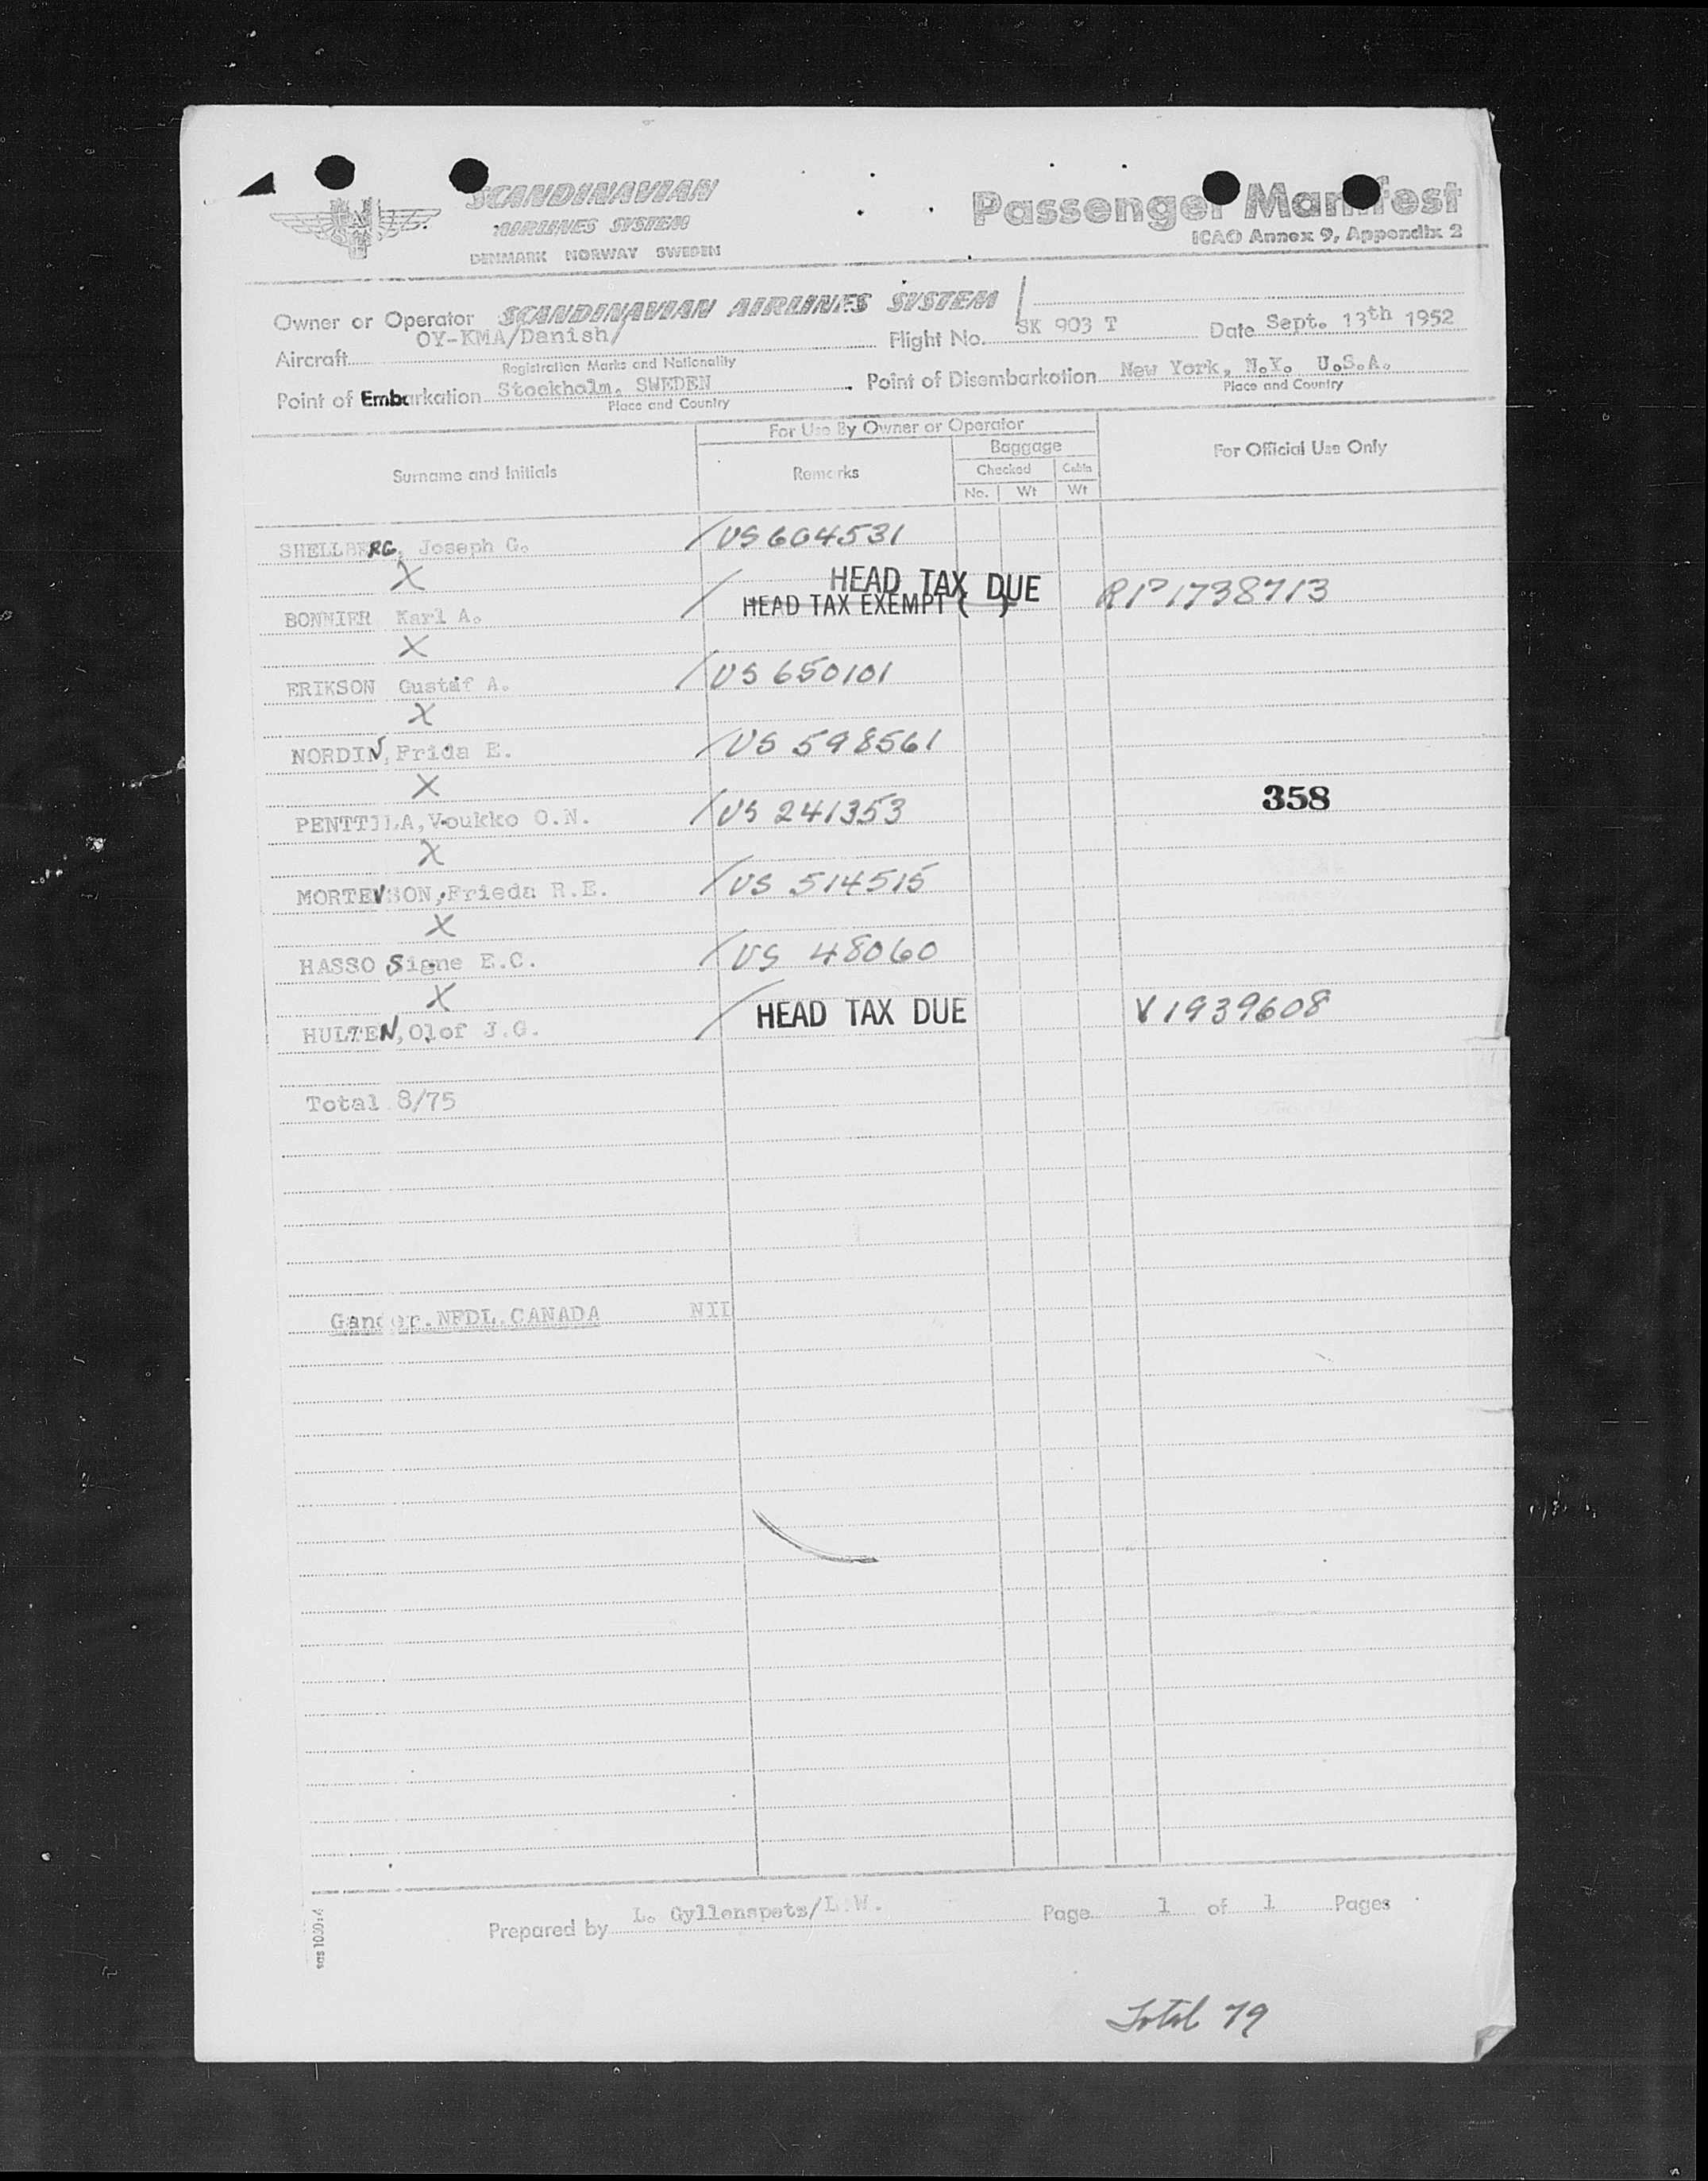 SCANDINAVIAN
AIRLINES SYSTEM
DENMARK NORWAY SWEDEN
Passenger Manifest
ICAO Annex 9, Appendix 2
Owner or Operator SCANDINAVIAN AIRLINES SYSTEM
Aircraft OY-KMA/Danish/ Flight No. SK 903 T Date Sept. 13th 1952
Registration Marks and Nationality
Point of Embarkation Stockholm, SWEDEN Point of Disembarkation New York, N.Y. U.S.A.
Place and Country Place and Country
For Use By Owner or Operator
Surname and Initials Remarks Baggage For Official Use Only
Checked Cabin
No. Wt Wt
SHELLBERG, Joseph G. /US 604531
X
HEAD TAX DUE
BONNIER Karl A. / HEAD TAX EXEMPT ( ) RP1738713
X
ERIKSON Gustaf A. /US 650101
X
NORDIN, Frida E. /US 598561
X
358
PENTTILA, Voukko O.N. /US 241353
X
MORTENSON, Frieda R.E. /US 514515
X
HASSO Signe E.C. /US 48060
X
HULTEN, Olof J.G. / HEAD TAX DUE V1939608
Total 8/75
Gander.NFDL.CANADA NIL
Prepared by L. Gyllenspetz/L.W. Page 1 of 1 Pages
Total 79